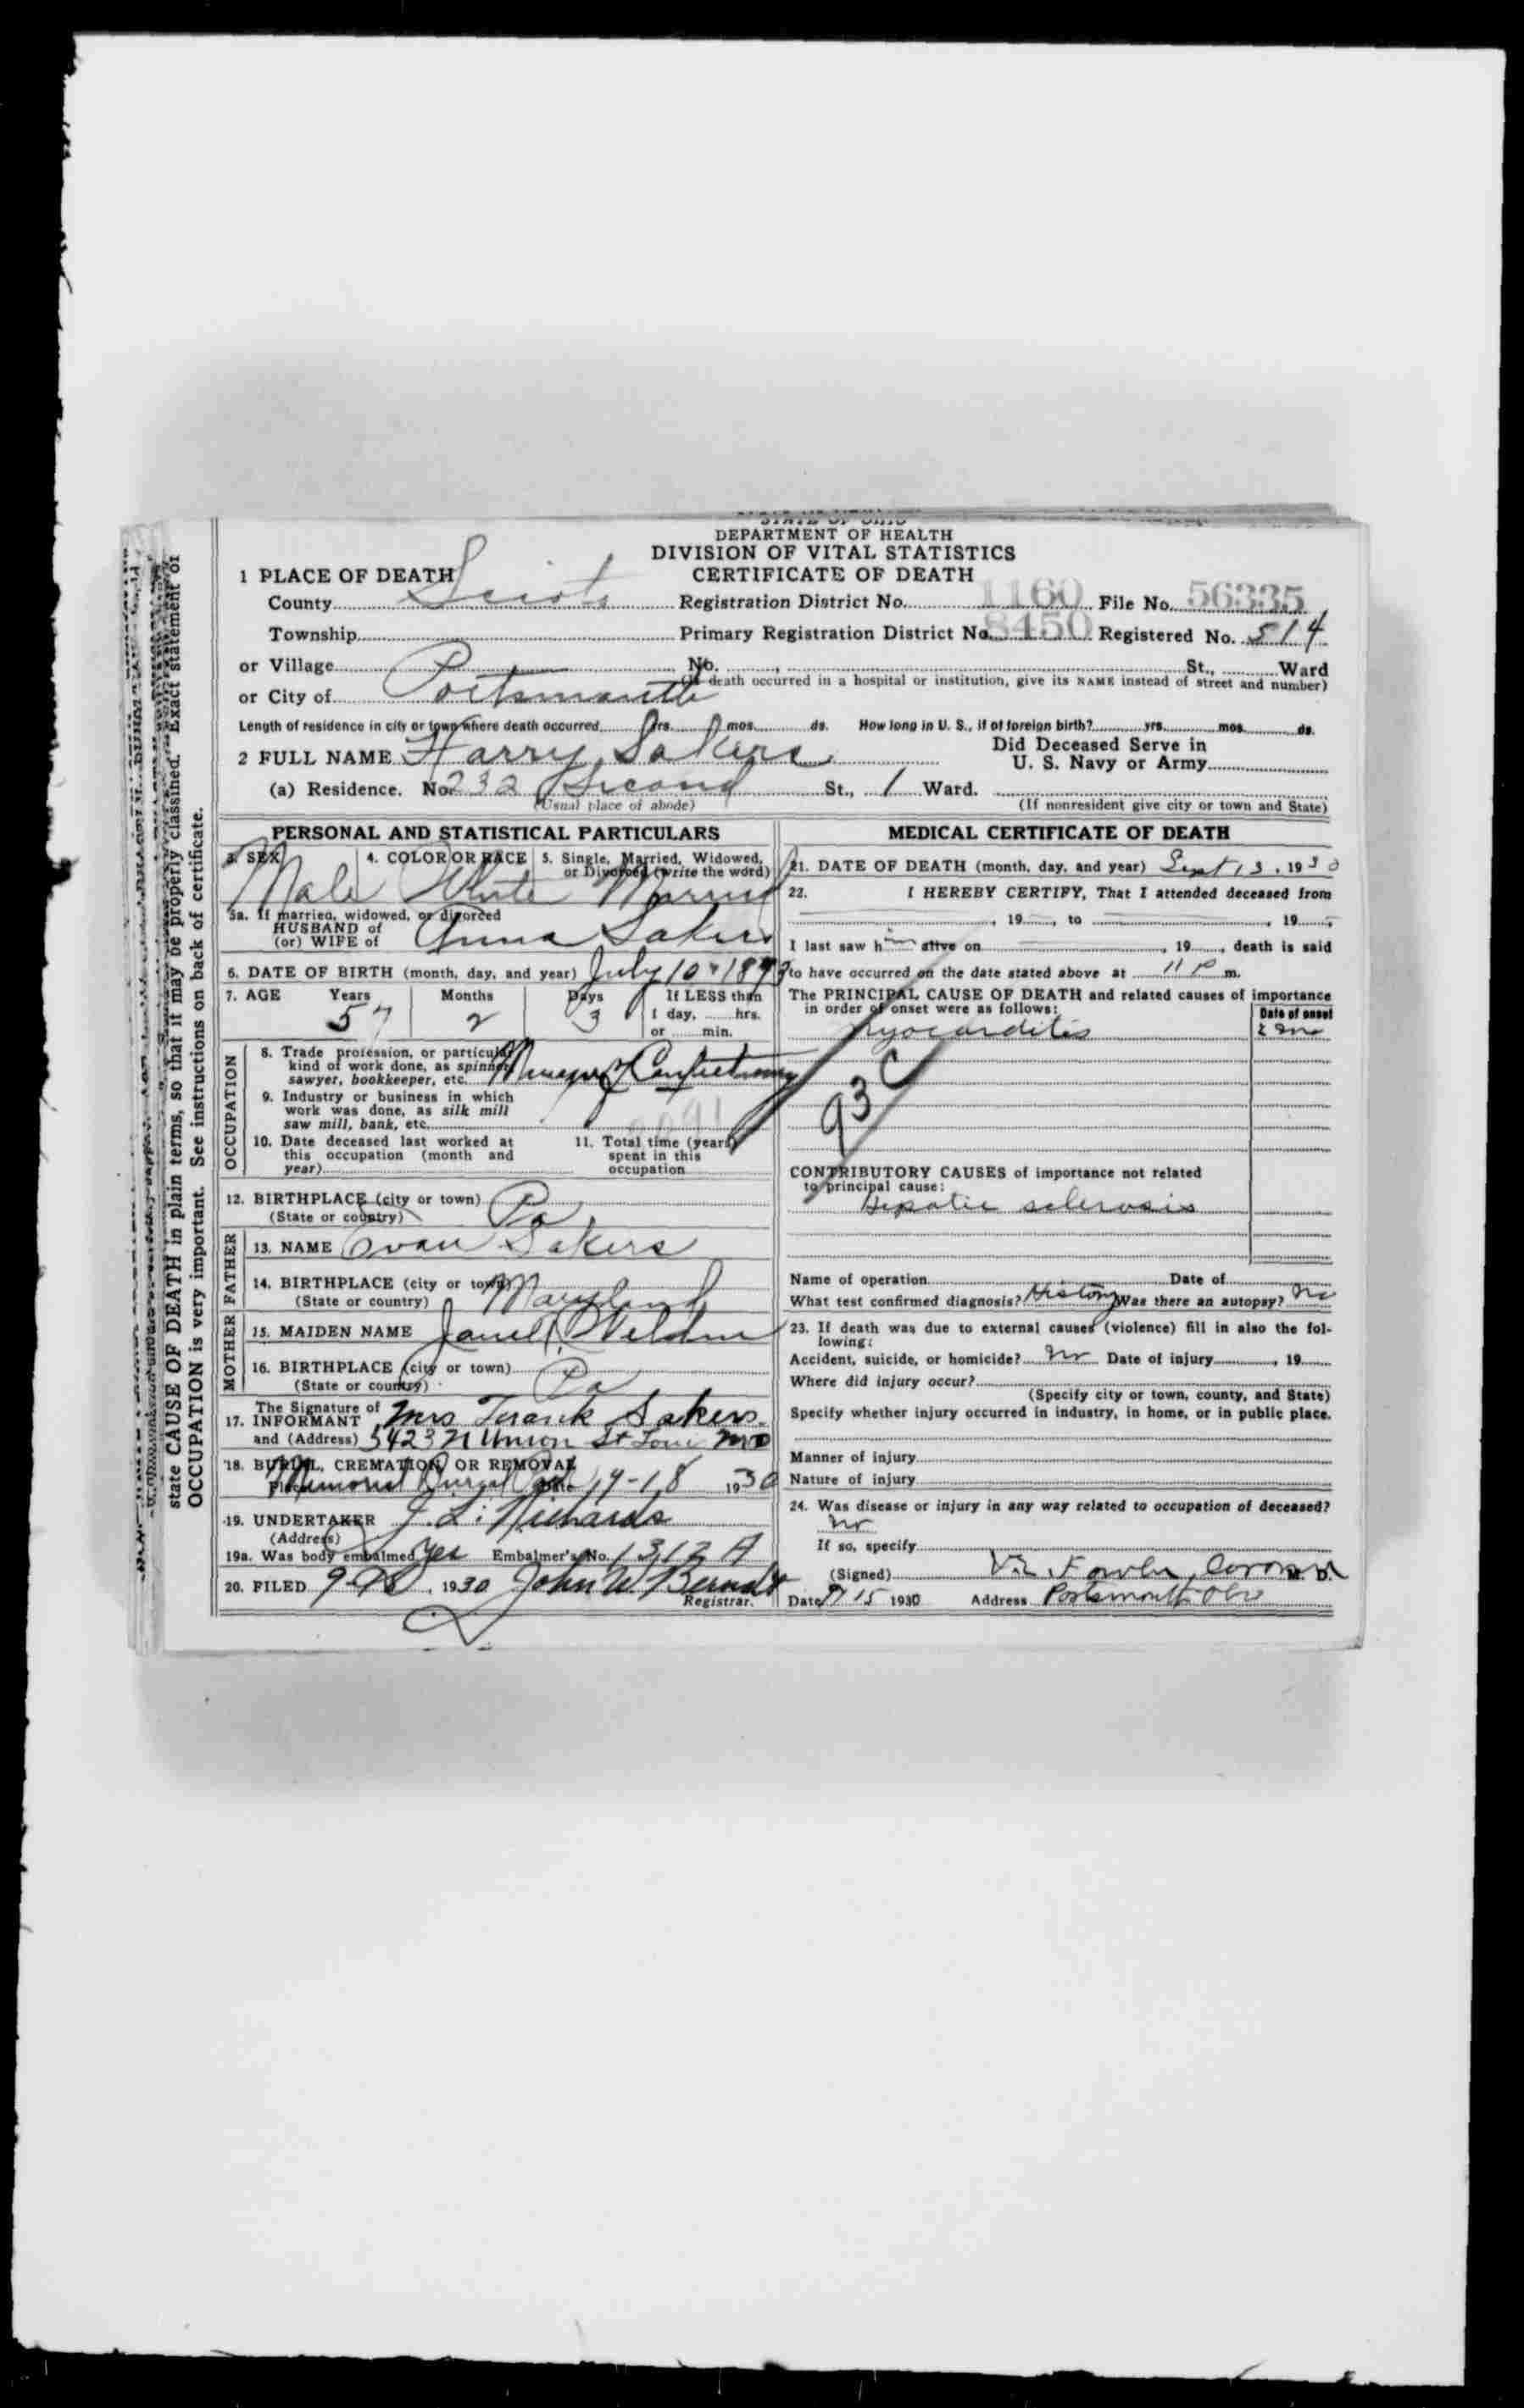 STATE OF OHIO
DEPARTMENT OF HEALTH
DIVISION OF VITAL STATISTICS
CERTIFICATE OF DEATH
1 PLACE OF DEATH
County Scioto Registration District No. 1160 File No. 56335
Township Primary Registration District No. 8450 Registered No. 514
or Village No. St., Ward
(If death occurred in a hospital or institution, give its NAME instead of street and number)
or City of Portsmouth
Length of residence in city or town where death occurred yrs. mos. ds. How long in U. S., if of foreign birth? yrs. mos. ds.
2 FULL NAME Harry Sakers
Did Deceased Serve in
U. S. Navy or Army
(a) Residence. No. 232 Second St., 1 Ward.
(Usual place of abode) (If nonresident give city or town and State)
state CAUSE OF DEATH in plain terms, so that it may be properly classified. Exact statement of
OCCUPATION is very important. See instructions on back of certificate.
PERSONAL AND STATISTICAL PARTICULARS
3. SEX 4. COLOR OR RACE 5. Single, Married, Widowed,
or Divorced (write the word)
Male White Married
5a. If married, widowed, or divorced
HUSBAND of
(or) WIFE of Anna Sakers
6. DATE OF BIRTH (month, day, and year) July 10 1873
7. AGE Years Months Days If LESS than
57 2 3 1 day, hrs.
or min.
OCCUPATION
8. Trade profession, or particular
kind of work done, as spinner,
sawyer, bookkeeper, etc. Manager of Confectionery
9. Industry or business in which
work was done, as silk mill
saw mill, bank, etc.
10. Date deceased last worked at
this occupation (month and
year)
11. Total time (years)
spent in this
occupation
12. BIRTHPLACE (city or town)
(State or country) Pa
FATHER
13. NAME Evan Sakers
14. BIRTHPLACE (city or town)
(State or country) Maryland
MOTHER
15. MAIDEN NAME
16. BIRTHPLACE (city or town)
(State or country) Pa
The Signature of
17. INFORMANT Mrs Frank Sakers
and (Address) 5423 N Union St Loui Mo
18. BURIAL, CREMATION OR REMOVAL
Place Memorial Burial Park Date 9-18 1930
19. UNDERTAKER J. L. Richards
(Address)
19a. Was body embalmed Yes Embalmer's No. 1313 A
20. FILED 1930 John W. Berndt
Registrar.
MEDICAL CERTIFICATE OF DEATH
21. DATE OF DEATH (month, day, and year) Sept 13, 1930
22. I HEREBY CERTIFY, That I attended deceased from
, 19 , to , 19
I last saw him alive on , 19 , death is said
to have occurred on the date stated above at 11 P m.
The PRINCIPAL CAUSE OF DEATH and related causes of importance
in order of onset were as follows:
Date of onset
Myocarditis
93C
CONTRIBUTORY CAUSES of importance not related
to principal cause:
Hepatic sclerosis
Name of operation Date of
What test confirmed diagnosis? History Was there an autopsy? No
23. If death was due to external causes (violence) fill in also the fol-
lowing:
Accident, suicide, or homicide? No Date of injury , 19
Where did injury occur?
(Specify city or town, county, and State)
Specify whether injury occurred in industry, in home, or in public place.
Manner of injury
Nature of injury
24. Was disease or injury in any way related to occupation of deceased?
No
If so, specify
(Signed) V.R. Fowler, Coroner M. D.
Date 9/15 1930 Address Portsmouth Ohio